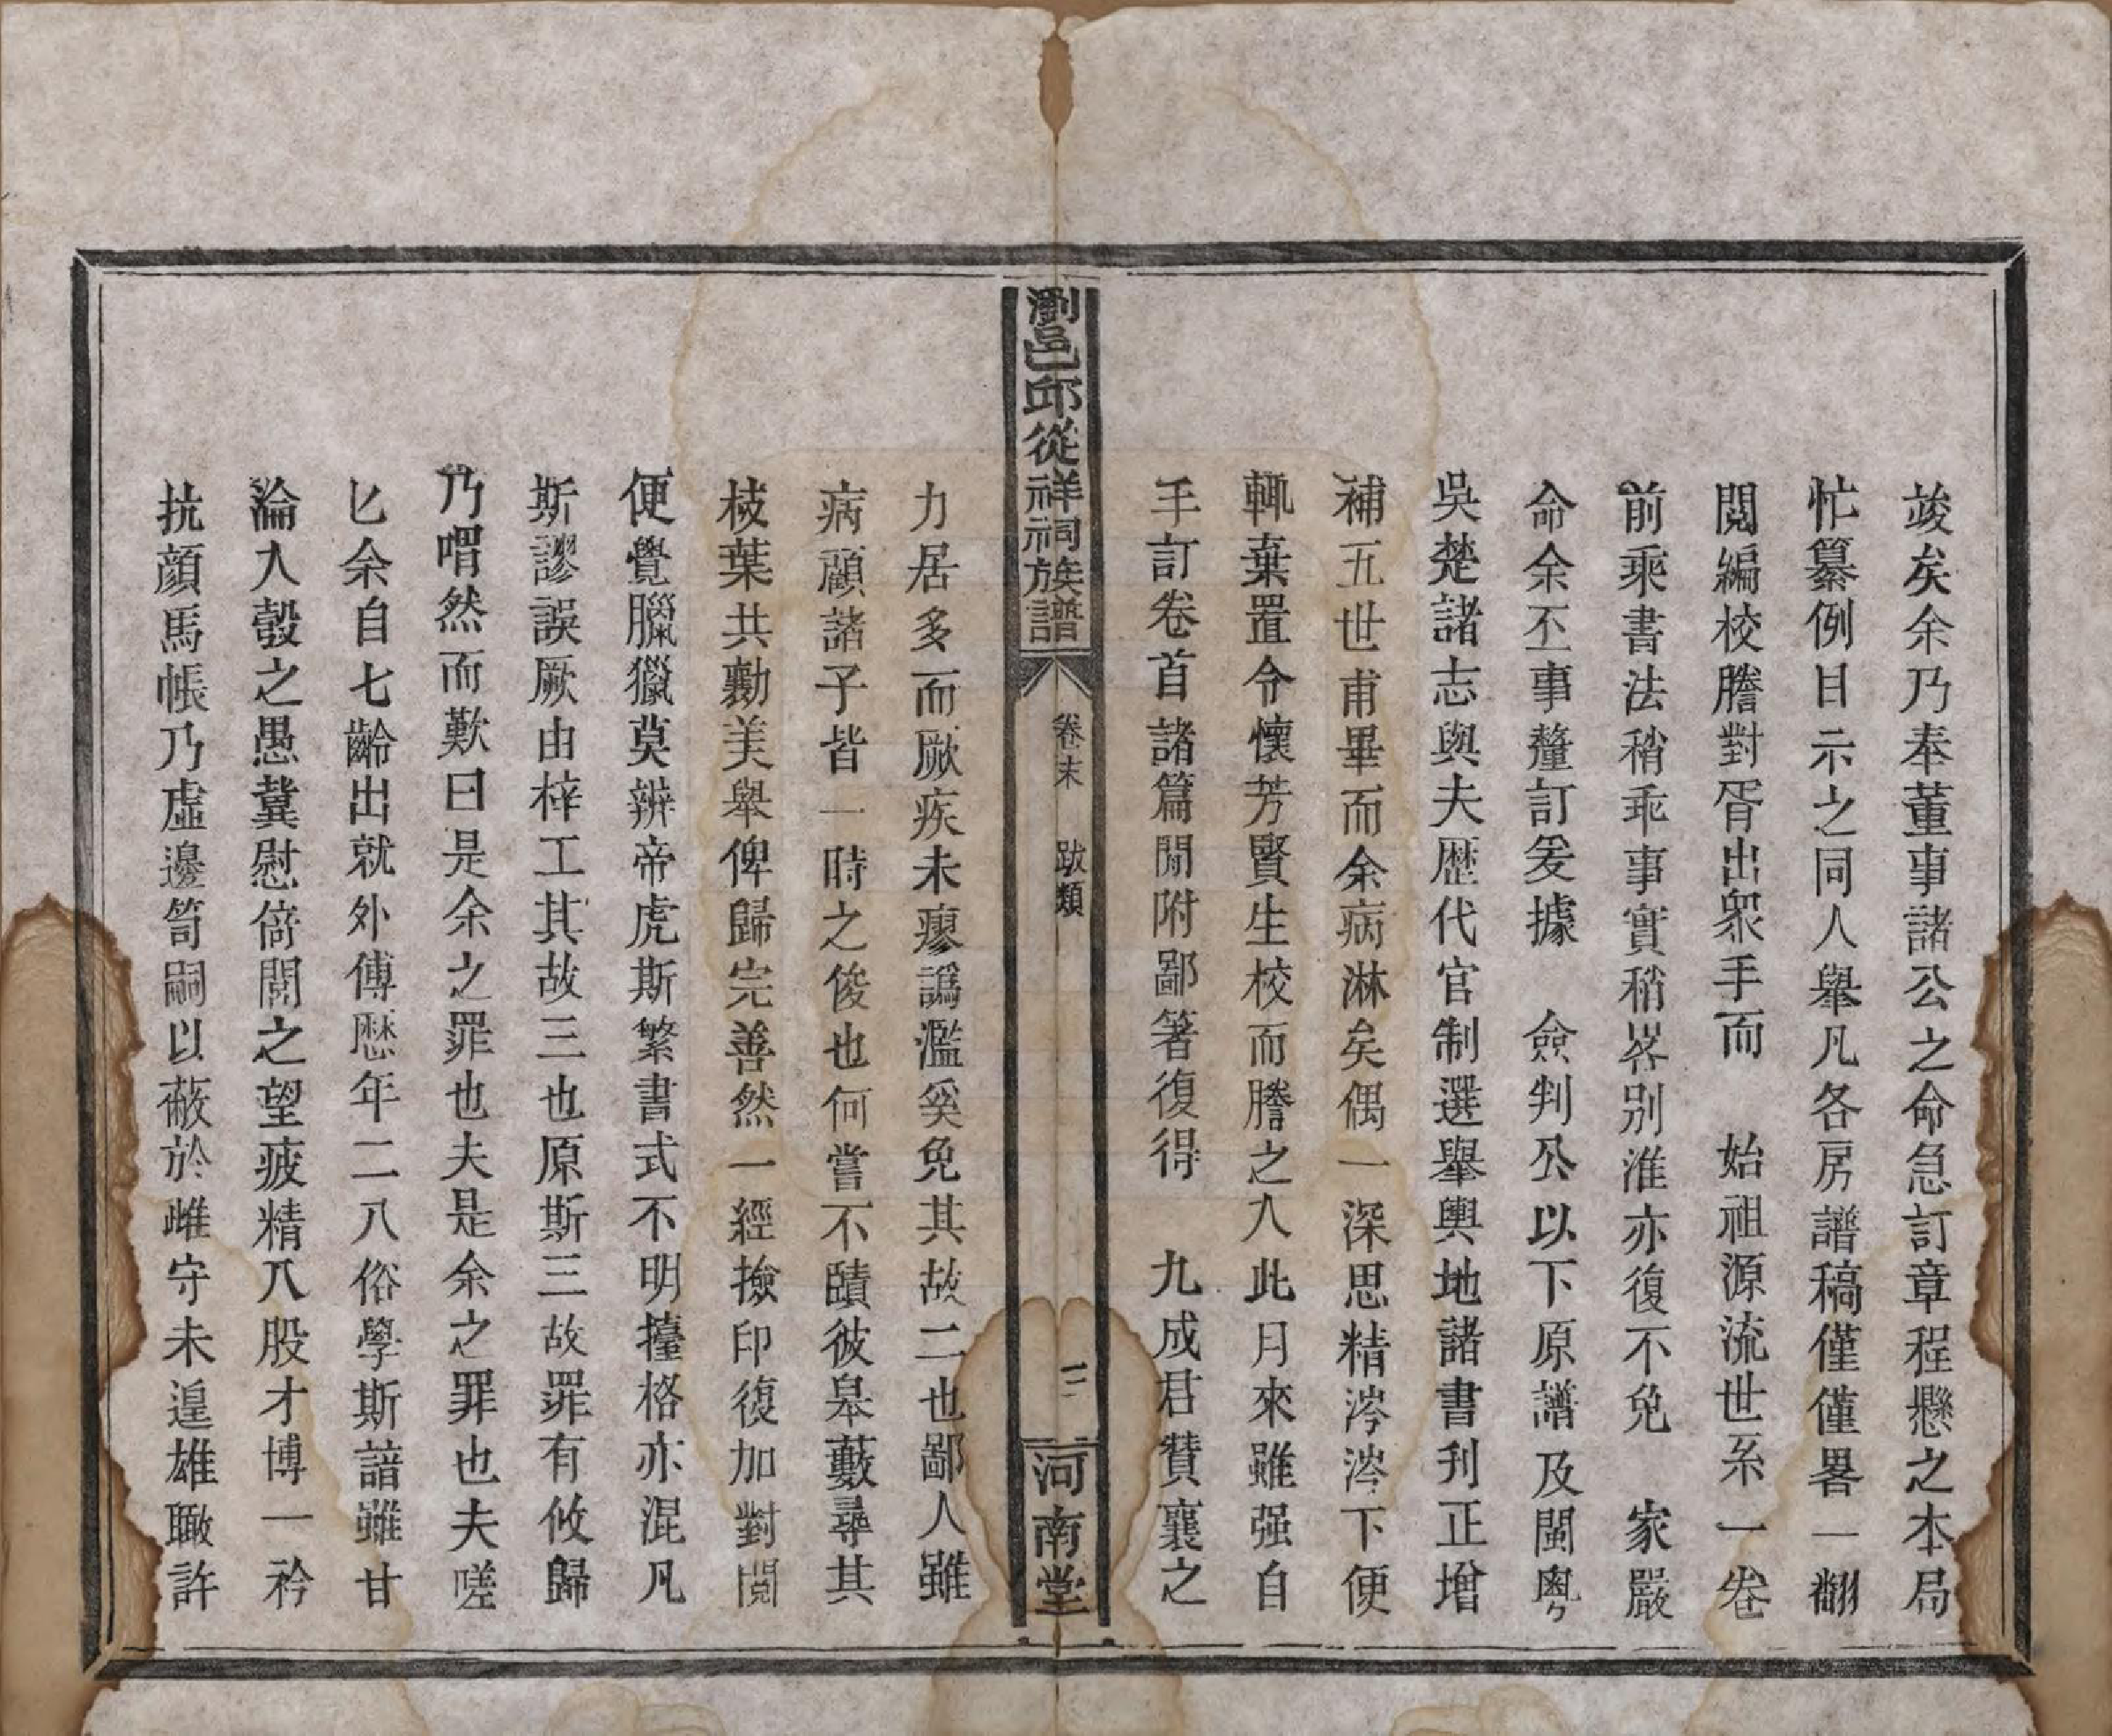 竣矣余乃奉董事諸公之命急訂章程懸之本局
忙纂例目示之同人舉凡各房譜稿僅僅畧一翻
閱編校謄對胥出衆手而　始祖源流世系一卷
前乘書法稍乖事實稍畧别淮亦復不免　家嚴
命余丕事釐訂爰據　僉判公以下原譜及閩粤
吳楚諸志與夫歷代官制選舉輿地諸書刋正增
補五世甫畢而余病淋矣偶一深思精涔涔下便
輒棄置令懷芳賢生校而謄之入此月來雖强自
手訂卷首諸篇閒附鄙箸復得　九成君贊襄之
瀏邑邱從祥祠族譜
卷末　跋類
三
河南堂
力居多而厥疾未瘳譌濫奚免其故二也鄙人雖
病顧諸子皆一時之俊也何嘗不賾彼皋藪尋其
棱葉共勷美舉俾歸完善然一經撿印復加對閱
便覺臘獵莫辨帝虎斯繁書式不明擡格亦混凡
斯謬誤厥由梓工其故三也原斯三故罪有攸歸
乃喟然而歎曰是余之罪也夫是余之罪也夫嗟
乚余自七齡出就外傅歷年二八俗學斯諳雖甘
淪入彀之愚冀慰倚閭之望疲精八股才博一衿
抗顔馬帳乃虛邊笥嗣以蔽於雌守未遑雄瞰許